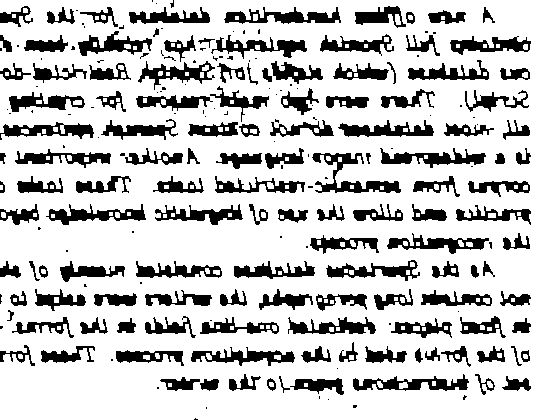 A new offline handwritten database for the Spa
contains full Spanish sentences, has recently been d
cus database (which stands for Spanish Restricted-do
Script). There were two main reasons for creating
all, most databases do not contain Spanish sentences,
is a widespread major language. Another important r
corpus from semantic-restricted tasks. These tasks a
practice and allow the use of linguistic knowledge beyo
the recognition process.
As the Spartacus database consisted mainly of sho
not contain long paragraphs, the writers were asked to
in fixed places: dedicated one-line fields in the forms.
of the forms used in the acquisition process. These for
set of instructions given to the writer.